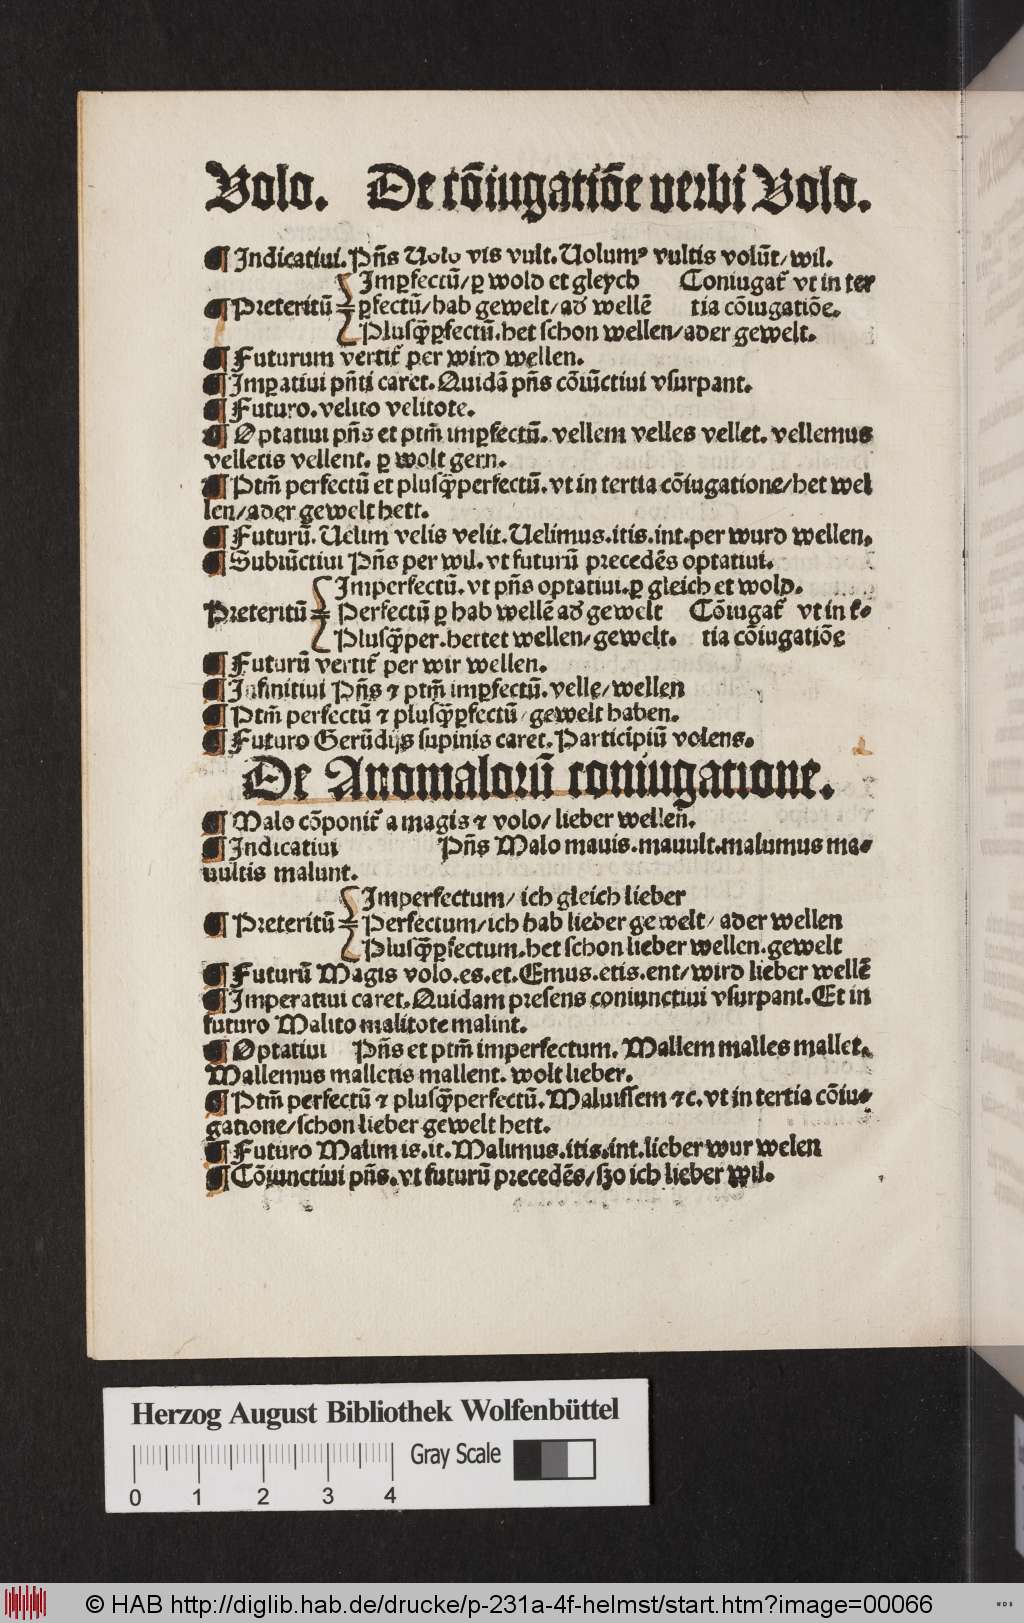 Volo. De cōiugatiōe verbi Volo.
¶ Indicatiui. Pñs Uolo vis vult. Uolumꝰ vultis volūt/ wil.
Imꝑfectū/ ꝑ wold et gleych Coniugat᷑ vt in ter
¶ Preteritū ꝑfectū/ hab gewelt/ ad wellē tia cōiugatiōe.
Plusq̄ꝑfectū. het schon wellen/ ader gewelt.
¶ Futurum vertit᷑ per wird wellen.
¶ Imꝑatiui pñti caret. Quidā pñs cōiūctiui vsurpant.
¶ Futuro. velito velitote.
¶ Optatiui pñs et ptm̄ imꝑfectū. vellem velles vellet. vellemus
velletis vellent. ꝑ wolt gern.
¶ Ptm̄ perfectū et plusq̄perfectū. vt in tertia cōiugatione/ het wel
len/ ader gewelt hett.
¶ Futurū. Uelim velis velit. Uelimus. itis. int. per wurd wellen.
¶ Subiūctiui Pñs per wil. vt futurū precedēs optatiui.
Imperfectū. vt pñs optatiui. ꝑ gleich et wold.
Preteritū Perfectū ꝑ hab wellē ad gewelt Cōiugat᷑ vt in t⸗
Plusq̄per. hettet wellen/ gewelt. tia cōiugatiōe
¶ Futurū vertit᷑ per wir wellen.
¶ Infinitiui Pñs ⁊ ptm̄ imꝑfectū. velle/ wellen
¶ Ptm̄ perfectū ⁊ plusq̄ꝑfectū/ gewelt haben.
¶ Futuro Gerūdijs supinis caret. Participiū volens.
De Anomalorū coniugatione.
¶ Malo cōponit᷑ a magis ⁊ volo/ lieber wellen.
¶ Indicatiui Pñs Malo mauis. mauult. malumus ma⸗
uultis malunt.
Imperfectum/ ich gleich lieber
¶ Preteritū Perfectum/ ich hab lieber gewelt/ ader wellen
Plusq̄ꝑfectum. het schon lieber wellen. gewelt
¶ Futurū Magis volo. es. et. Emus. etis. ent/ wird lieber wellē
¶ Imperatiui caret. Quidam presens coniunctiui vsurpant. Et in
futuro Malito malitote malint.
¶ Optatiui Pñs et ptm̄ imperfectum. Mallem malles mallet.
Mallemus malletis mallent. wolt lieber.
¶ Ptm̄ perfectū ⁊ plusq̄perfectū. Maluissem ⁊c. vt in tertia cōiu⸗
gatione/ schon lieber gewelt hett.
¶ Futuro Malim is. it. Malimus. itis. int. lieber wur welen
¶ Cōiunctiui pñs. vt futurū precedēs/ szo ich lieber wil.
Herzog August Bibliothek Wolfenbüttel
Gray Scale
0 1 2 3 4
© HAB http://diglib.hab.de/drucke/p-231a-4f-helmst/start.htm?image=00066